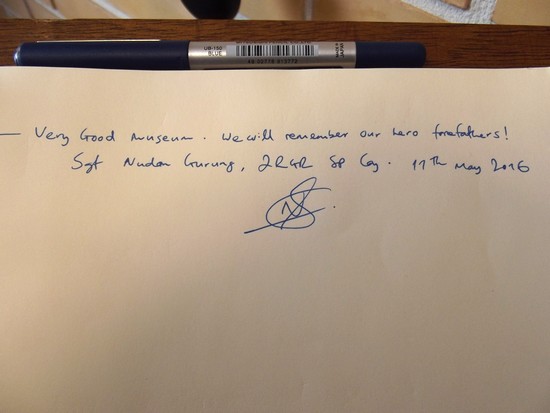 UB-150
BLUE
MADE IN JAPAN
— Very Good museum. We will remember our hero forefathers!
Sgt Nudan Gurung, 2RGR Sp Coy. 17th May 2016